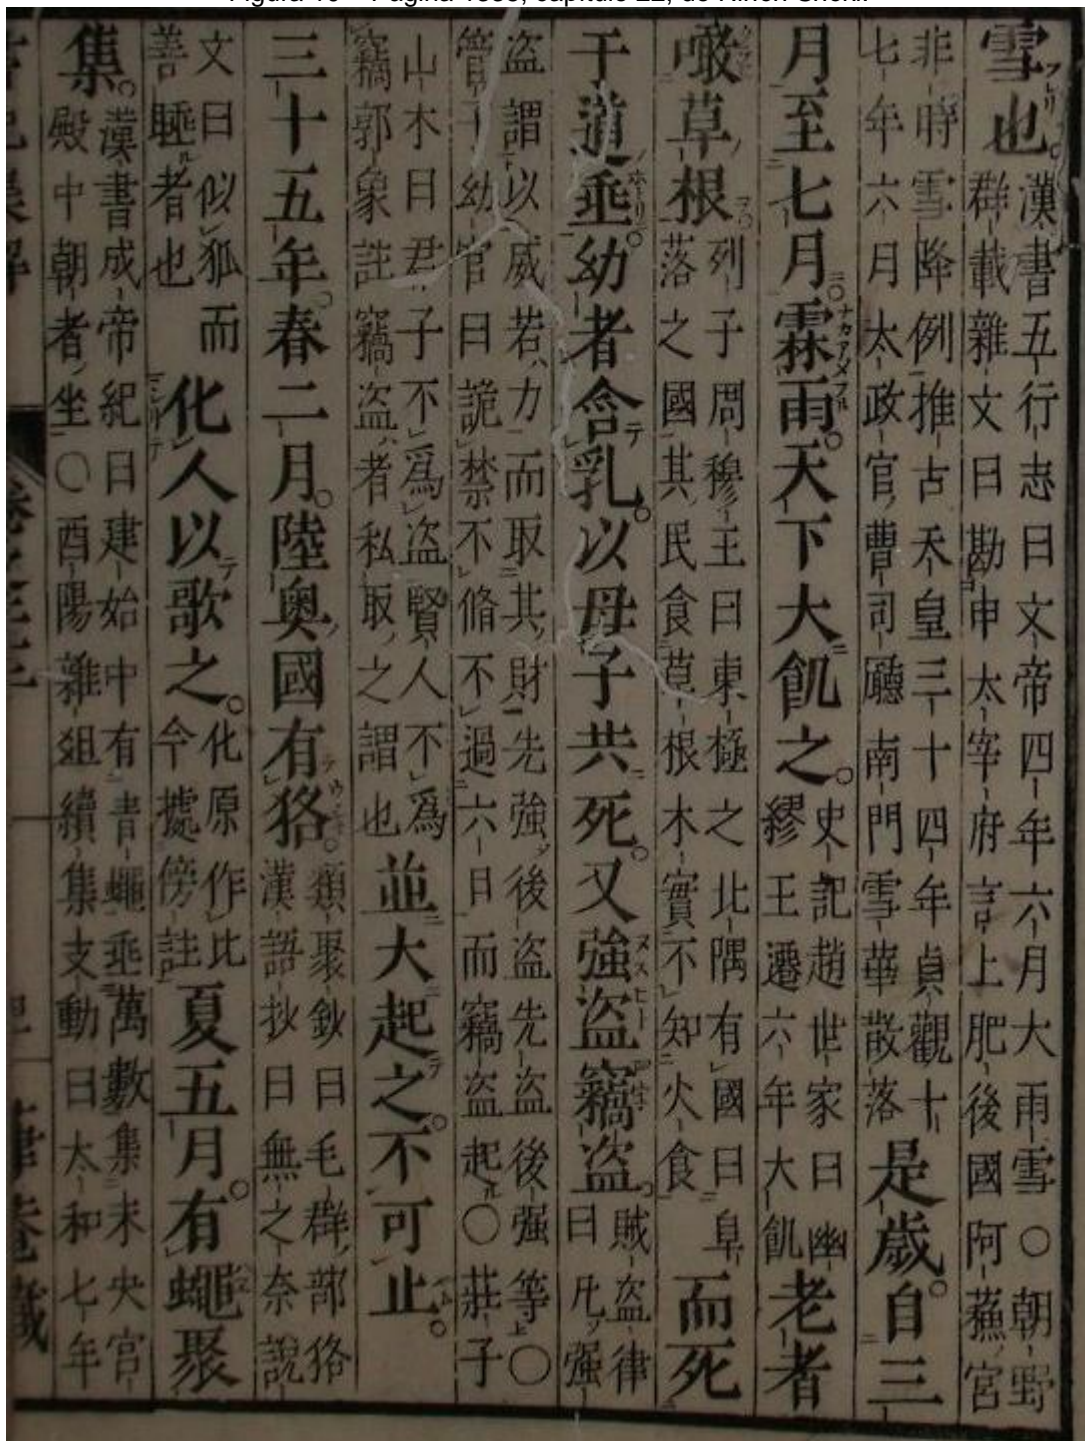 雪也。漢書五行志曰文帝四年六月大雨雪○朝野
群載雜文曰勘申太宰府言上肥後國阿蘇宮
非時雪降例推古天皇三十四年貞觀十
七年六月太政官曹司廳南門雪華散落
是歲。自三
月至七月。霖雨。天下大飢之。史記趙世家曰幽
繆王遷六年大飢
老者
噉草根列子周穆王曰東極之北隅有國曰阜
落之國其民食草根木實不知火食
而死
于道垂。幼者含乳。以母子共死。又強盜竊盜。賊盜律
曰凡強
盜謂以威若力而取其財先強後盜先盜後强等○
管子幼官曰詭禁不脩不過六日而竊盜起○莊子
山木曰君子不爲盜賢人不爲
竊郭象註竊盜者私取之謂也
並大起之。不可止。
三十五年。春二月。陸奧國有狢。類聚鈔曰毛群部狢
漢語抄曰無之奈說
文曰似狐而
善睡者也
化人以歌之。化原作比
今據傍註
夏五月。有蠅聚
集。漢書成帝紀曰建始中有青蠅垂萬數集未央宮
殿中朝者坐○酉陽雜俎續集支動曰太和七年